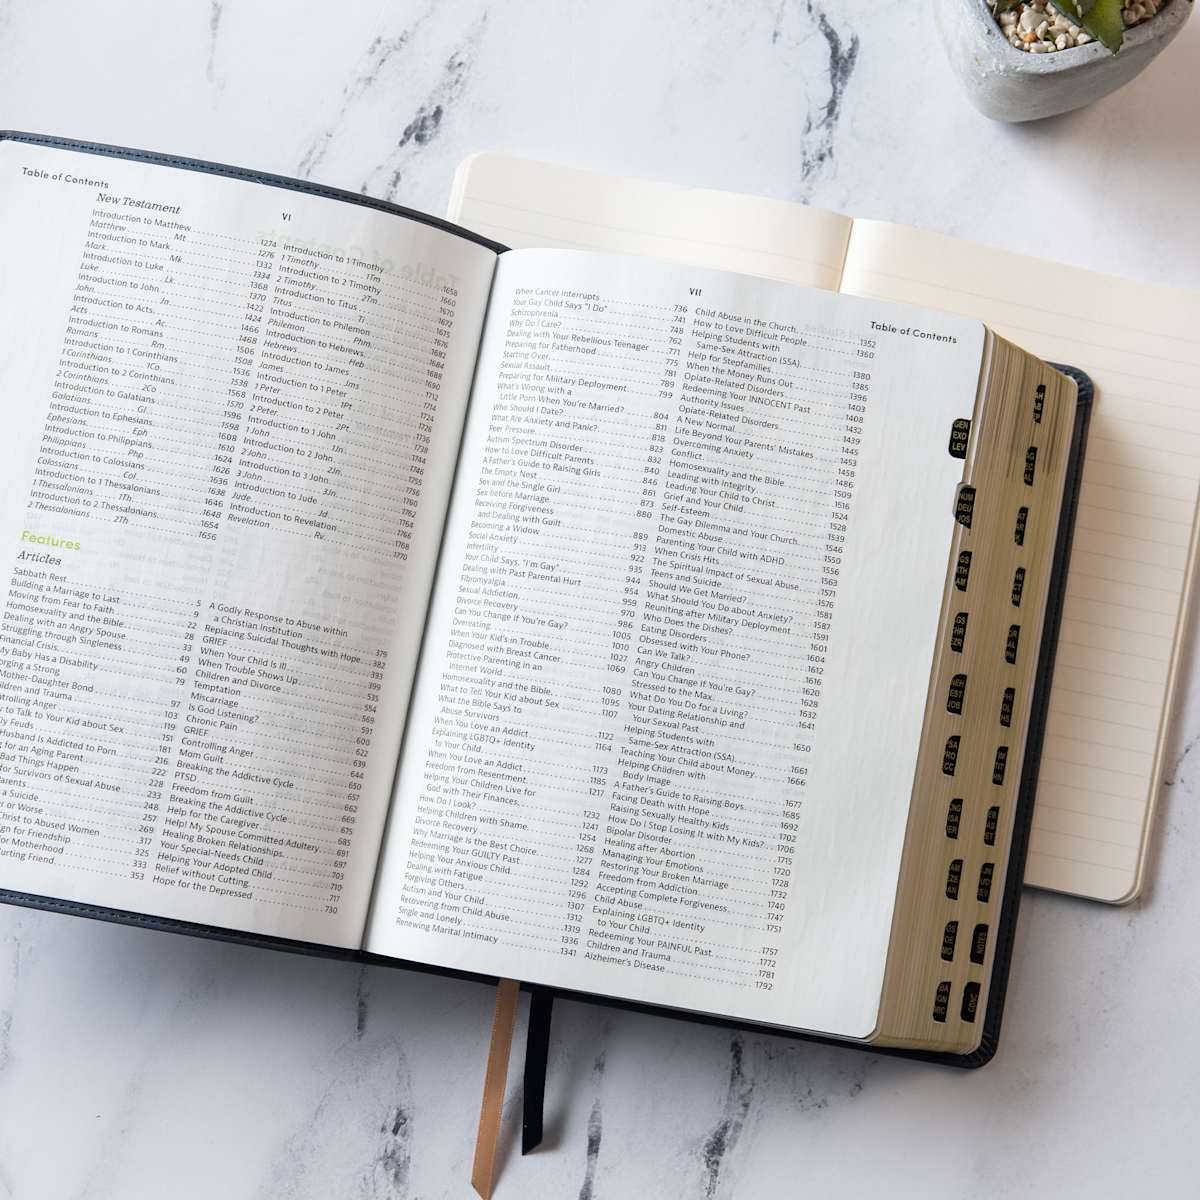 Table of Contents
VI
New Testament
Introduction to Matthew
Matthew Mt 1274
Introduction to Mark 1276
Mark Mk 1332
Introduction to Luke 1334
Luke Lk 1368
Introduction to John 1370
John Jn 1422
Introduction to Acts 1424
Acts Ac 1466
Introduction to Romans 1468
Romans Rm 1506
Introduction to 1 Corinthians 1508
1 Corinthians 1Co 1536
Introduction to 2 Corinthians 1538
2 Corinthians 2Co 1568
Introduction to Galatians 1570
Galatians Gl 1596
Introduction to Ephesians 1598
Ephesians Eph 1608
Introduction to Philippians 1610
Philippians Php 1624
Introduction to Colossians 1626
Colossians Col 1636
Introduction to 1 Thessalonians 1638
1 Thessalonians 1Th 1646
Introduction to 2 Thessalonians 1648
2 Thessalonians 2Th 1654
1656
Introduction to 1 Timothy
1 Timothy 1Tm 1658
Introduction to 2 Timothy 1660
2 Timothy 2Tm 1670
Introduction to Titus 1672
Titus Ti 1675
Introduction to Philemon 1676
Philemon Phm 1682
Introduction to Hebrews 1684
Hebrews Heb 1688
Introduction to James 1690
James Jms 1712
Introduction to 1 Peter 1714
1 Peter 1Pt 1724
Introduction to 2 Peter 1726
2 Peter 2Pt 1736
Introduction to 1 John 1738
1 John 1Jn 1744
Introduction to 2 John 1746
2 John 2Jn 1755
Introduction to 3 John 1756
3 John 3Jn 1760
Introduction to Jude 1762
Jude Jd 1764
Introduction to Revelation 1766
Revelation Rv 1768
1770
Features
Articles
Sabbath Rest 5
Building a Marriage to Last 9
Moving from Fear to Faith 22
Homosexuality and the Bible 28
Dealing with an Angry Spouse 33
Struggling through Singleness 49
Financial Crisis 60
My Baby Has a Disability 79
orging a Strong
Mother-Daughter Bond 97
ldren and Trauma 103
trolling Anger 119
to Talk to Your Kid about Sex 151
ly Feuds 181
Husband Is Addicted to Porn 216
g for an Aging Parent 222
Bad Things Happen 228
for Survivors of Sexual Abuse 233
arents 248
a Suicide 257
er or Worse 269
Christ to Abused Women 317
gn for Friendship 325
for Motherhood 333
urting Friend 353
A Godly Response to Abuse within
a Christian Institution 379
Replacing Suicidal Thoughts with Hope 382
GRIEF 393
When Your Child Is Ill 399
When Trouble Shows Up 535
Children and Divorce 554
Temptation 569
Miscarriage 591
Is God Listening? 600
Chronic Pain 622
GRIEF 639
Controlling Anger 644
Mom Guilt 650
Breaking the Addictive Cycle 657
PTSD 662
Freedom from Guilt 669
Breaking the Addictive Cycle 675
Help for the Caregiver 685
Help! My Spouse Committed Adultery 691
Healing Broken Relationships 697
Your Special-Needs Child 703
Helping Your Adopted Child 710
Relief without Cutting 717
Hope for the Depressed 730
VII
Table of Contents
When Cancer Interrupts 736
Your Gay Child Says "I Do" 741
Schizophrenia 748
Why Do I Care? 762
Dealing with Your Rebellious Teenager 771
Preparing for Fatherhood 775
Starting Over 781
Sexual Assault 789
Preparing for Military Deployment 799
What's Wrong with a
Little Porn When You're Married? 804
Who Should I Date? 811
What Are Anxiety and Panic? 818
Peer Pressure 823
Autism Spectrum Disorder 832
How to Love Difficult Parents 840
A Father's Guide to Raising Girls 846
The Empty Nest 861
Sex and the Single Girl 873
Sex before Marriage 880
Receiving Forgiveness
and Dealing with Guilt 889
Becoming a Widow 913
Social Anxiety 922
Infertility 935
Your Child Says, "I'm Gay" 944
Dealing with Past Parental Hurt 954
Fibromyalgia 959
Sexual Addiction 970
Divorce Recovery 986
Can You Change If You're Gay? 1005
Overeating 1010
When Your Kid's in Trouble 1027
Diagnosed with Breast Cancer 1069
Protective Parenting in an
Internet World 1080
Homosexuality and the Bible 1095
What to Tell Your Kid about Sex 1107
What the Bible Says to
Abuse Survivors 1122
When You Love an Addict 1164
Explaining LGBTQ+ Identity
to Your Child 1173
When You Love an Addict 1185
Freedom from Resentment 1217
Helping Your Children Live for
God with Their Finances 1232
How Do I Look? 1241
Helping Children with Shame 1254
Divorce Recovery 1268
Why Marriage Is the Best Choice 1277
Redeeming Your GUILTY Past 1284
Helping Your Anxious Child 1292
Dealing with Fatigue 1296
Forgiving Others 1307
Autism and Your Child 1312
Recovering from Child Abuse 1319
Single and Lonely 1336
Renewing Marital Intimacy 1341
Child Abuse in the Church 1352
How to Love Difficult People 1360
Helping Students with
Same-Sex Attraction (SSA) 1380
Help for Stepfamilies 1385
When the Money Runs Out 1396
Opiate-Related Disorders 1403
Redeeming Your INNOCENT Past 1408
Authority Issues 1432
Opiate-Related Disorders 1439
A New Normal 1445
Life Beyond Your Parents' Mistakes 1453
Overcoming Anxiety 1458
Conflict 1486
Homosexuality and the Bible 1509
Leading with Integrity 1516
Leading Your Child to Christ 1524
Grief and Your Child 1528
Self-Esteem 1539
The Gay Dilemma and Your Church 1546
Domestic Abuse 1550
Parenting Your Child with ADHD 1556
When Crisis Hits 1563
The Spiritual Impact of Sexual Abuse 1571
Teens and Suicide 1576
Should We Get Married? 1581
What Should You Do about Anxiety? 1587
Reuniting after Military Deployment 1591
Who Does the Dishes? 1601
Eating Disorders 1604
Obsessed with Your Phone? 1612
Can We Talk? 1616
Angry Children 1620
Can You Change If You're Gay? 1628
Stressed to the Max 1632
What Do You Do for a Living? 1641
Your Dating Relationship and
Your Sexual Past 1650
Helping Students with
Same-Sex Attraction (SSA) 1661
Teaching Your Child about Money 1666
Helping Children with
Body Image 1677
A Father's Guide to Raising Boys 1685
Facing Death with Hope 1692
Raising Sexually Healthy Kids 1702
How Do I Stop Losing It with My Kids? 1706
Bipolar Disorder 1715
Healing after Abortion 1720
Managing Your Emotions 1728
Restoring Your Broken Marriage 1732
Freedom from Addiction 1740
Accepting Complete Forgiveness 1747
Child Abuse 1751
Explaining LGBTQ+ Identity
to Your Child 1757
Redeeming Your PAINFUL Past 1772
Children and Trauma 1781
Alzheimer's Disease 1792
GEN
EXO
LEV
NUM
DEU
JOS
NEH
EST
JOB
NOTES
CONC